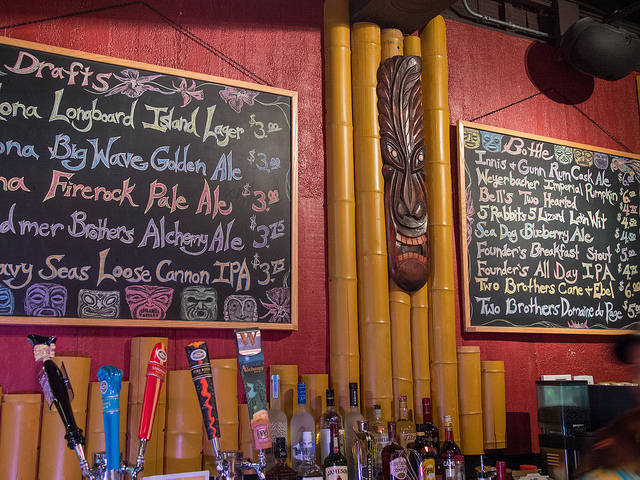 Drafts
ona Longboard Island Lager $3.00
ona Big Wave Golden Ale $3.00
na Firerock Pale Ale $3.00
dmer Brothers Alchemy Ale $3.75
avy Seas Loose Cannon IPA $3.75
Bottle
Innis & Gunn Rum Cask Ale
Weyerbacher Imperial Pumpkin
Bell's Two Hearted
5 Rabbits 5 Lizard Latin Wit
Sea Dog Blueberry Ale
Founder's Breakfast Stout
Founder's All Day IPA
Two Brothers Cane & Ebel
Two Brothers Domaine du Page
W
Alchemy
JAMESON